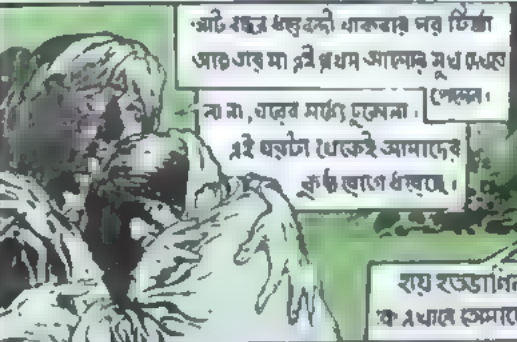 আট বছর ধরে বন্দী থাকবার পর
আর তার মা এই প্রথম আলোর মুখ দেখতে
পেলেন।
না না, ঘরের মধ্যে ঢুকোনা।
এই ঘরটা থেকেই আমাদের
কুষ্ঠ রোগে ধরেছে।
হায়
এখানে